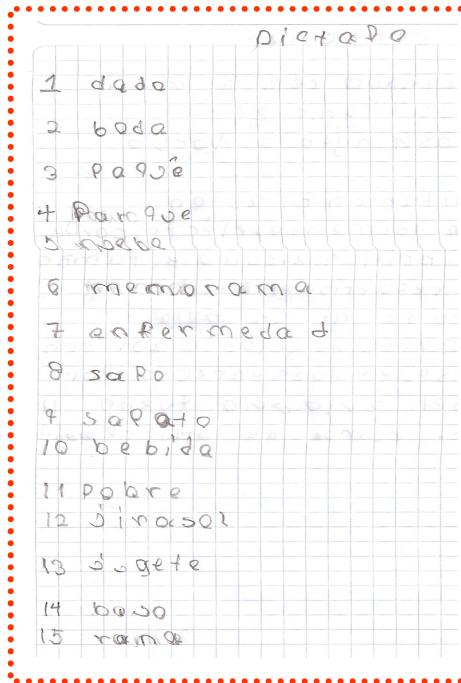 Dictado
1 dado
2 boda
3 paquê
4 Parque
5 noebe
6 memorama
7 enfermedad
8 sapo
9 sapato
10 bebida
11 pobre
12 jirasol
13 jugete
14 baso
15 rama